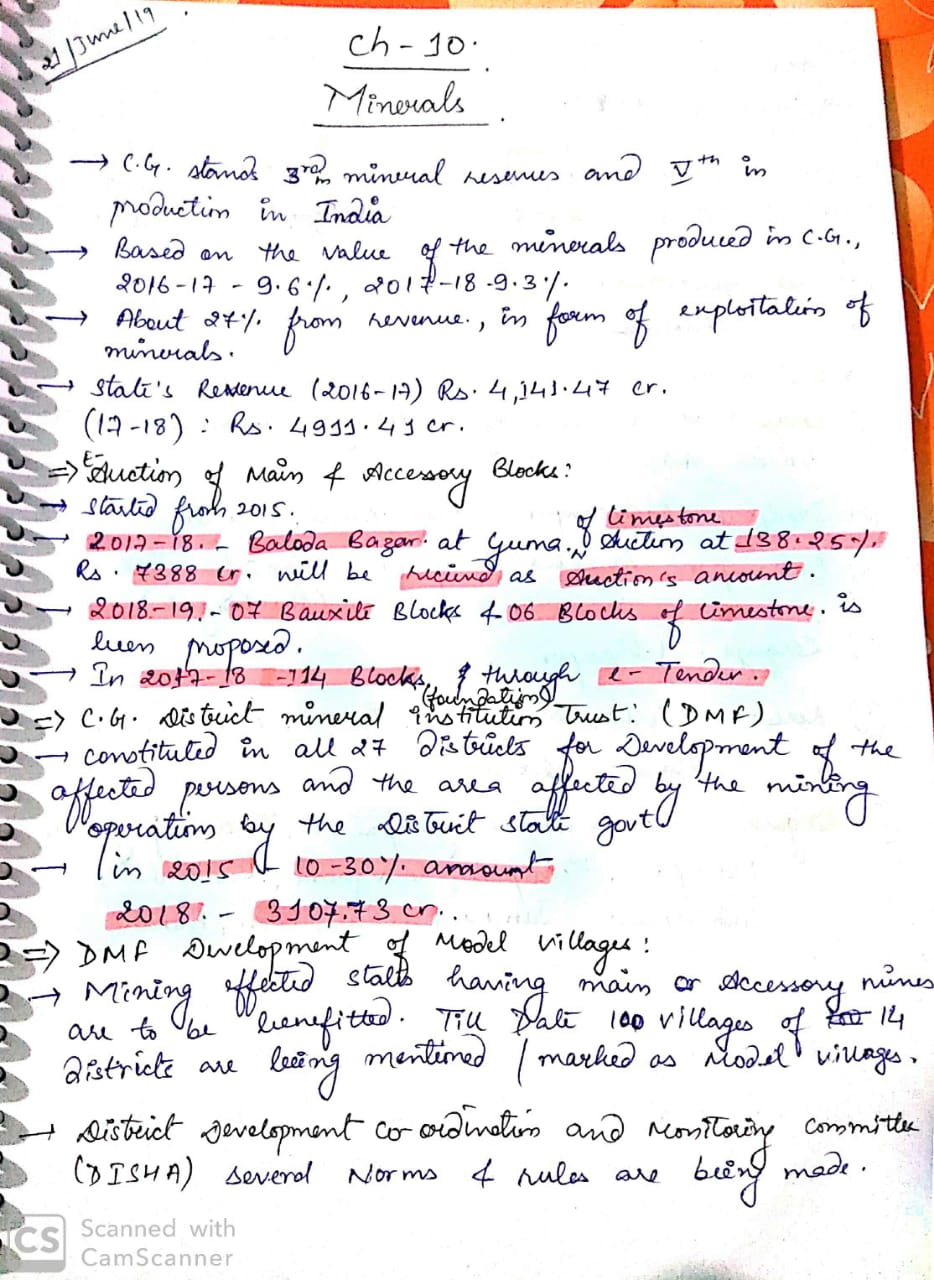 21/June/19
Ch-10.
Minerals.
→ C.G. stands 3rd in mineral reserves and Vth in
production in India
→ Based on the value of the minerals produced in C.G.,
2016-17 - 9.6%, 2017-18 - 9.3%.
→ About 27% from revenue, in form of exploitation of
minerals.
→ State's Revenue (2016-17) Rs. 4,141.47 cr.
(17-18) : Rs. 4911.41 cr.
⇒ E-Auction of Main & Accessory Blocks:
→ Started from 2015.
→ 2017-18. - Baloda Bazar at Guma. of limestone Auction at 138.25%.
Rs. 7388 cr. will be received as Auction's amount.
→ 2018-19. - 07 Bauxite Blocks & 06 Blocks of limestone. is
been proposed.
→ In 2017-18 - 114 Blocks, through e-Tender.
⇒ C.G. District mineral institution (foundation) Trust: (DMF)
→ constituted in all 27 districts for Development of the
affected persons and the area affected by the mining
operations by the District state govt
→ in 2015 - 10-30% amount
2018. - 3107.73 cr..
⇒ DMF Development of Model villages:
→ Mining effected states having main or Accessory mines
are to be benefitted. Till Date 100 villages of 14
districts are being mentioned / marked as Model villages.
→ District Development co-ordination and Monitoring Committee
(DISHA) several Norms & rules are being made.
CS Scanned with
CamScanner